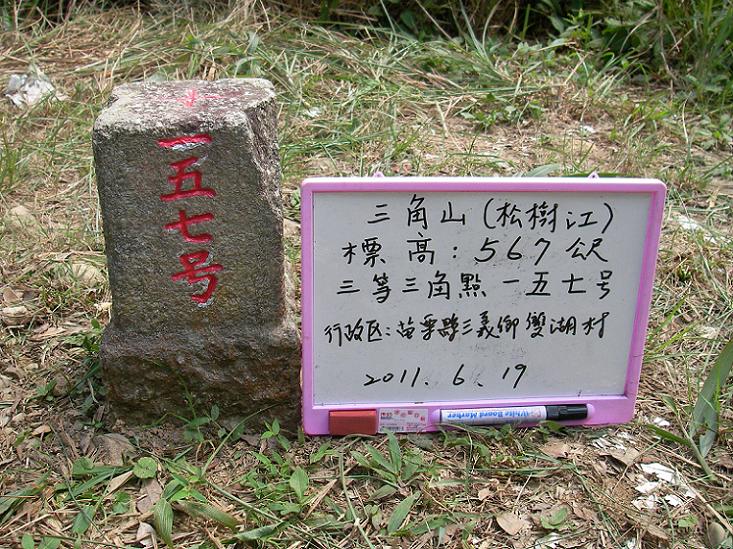 一五七号
三角山(松樹江)
標高:567公尺
三等三角點一五七号
行政区:苗栗縣三義鄉雙湖村
2011.6.19
White Board Marker